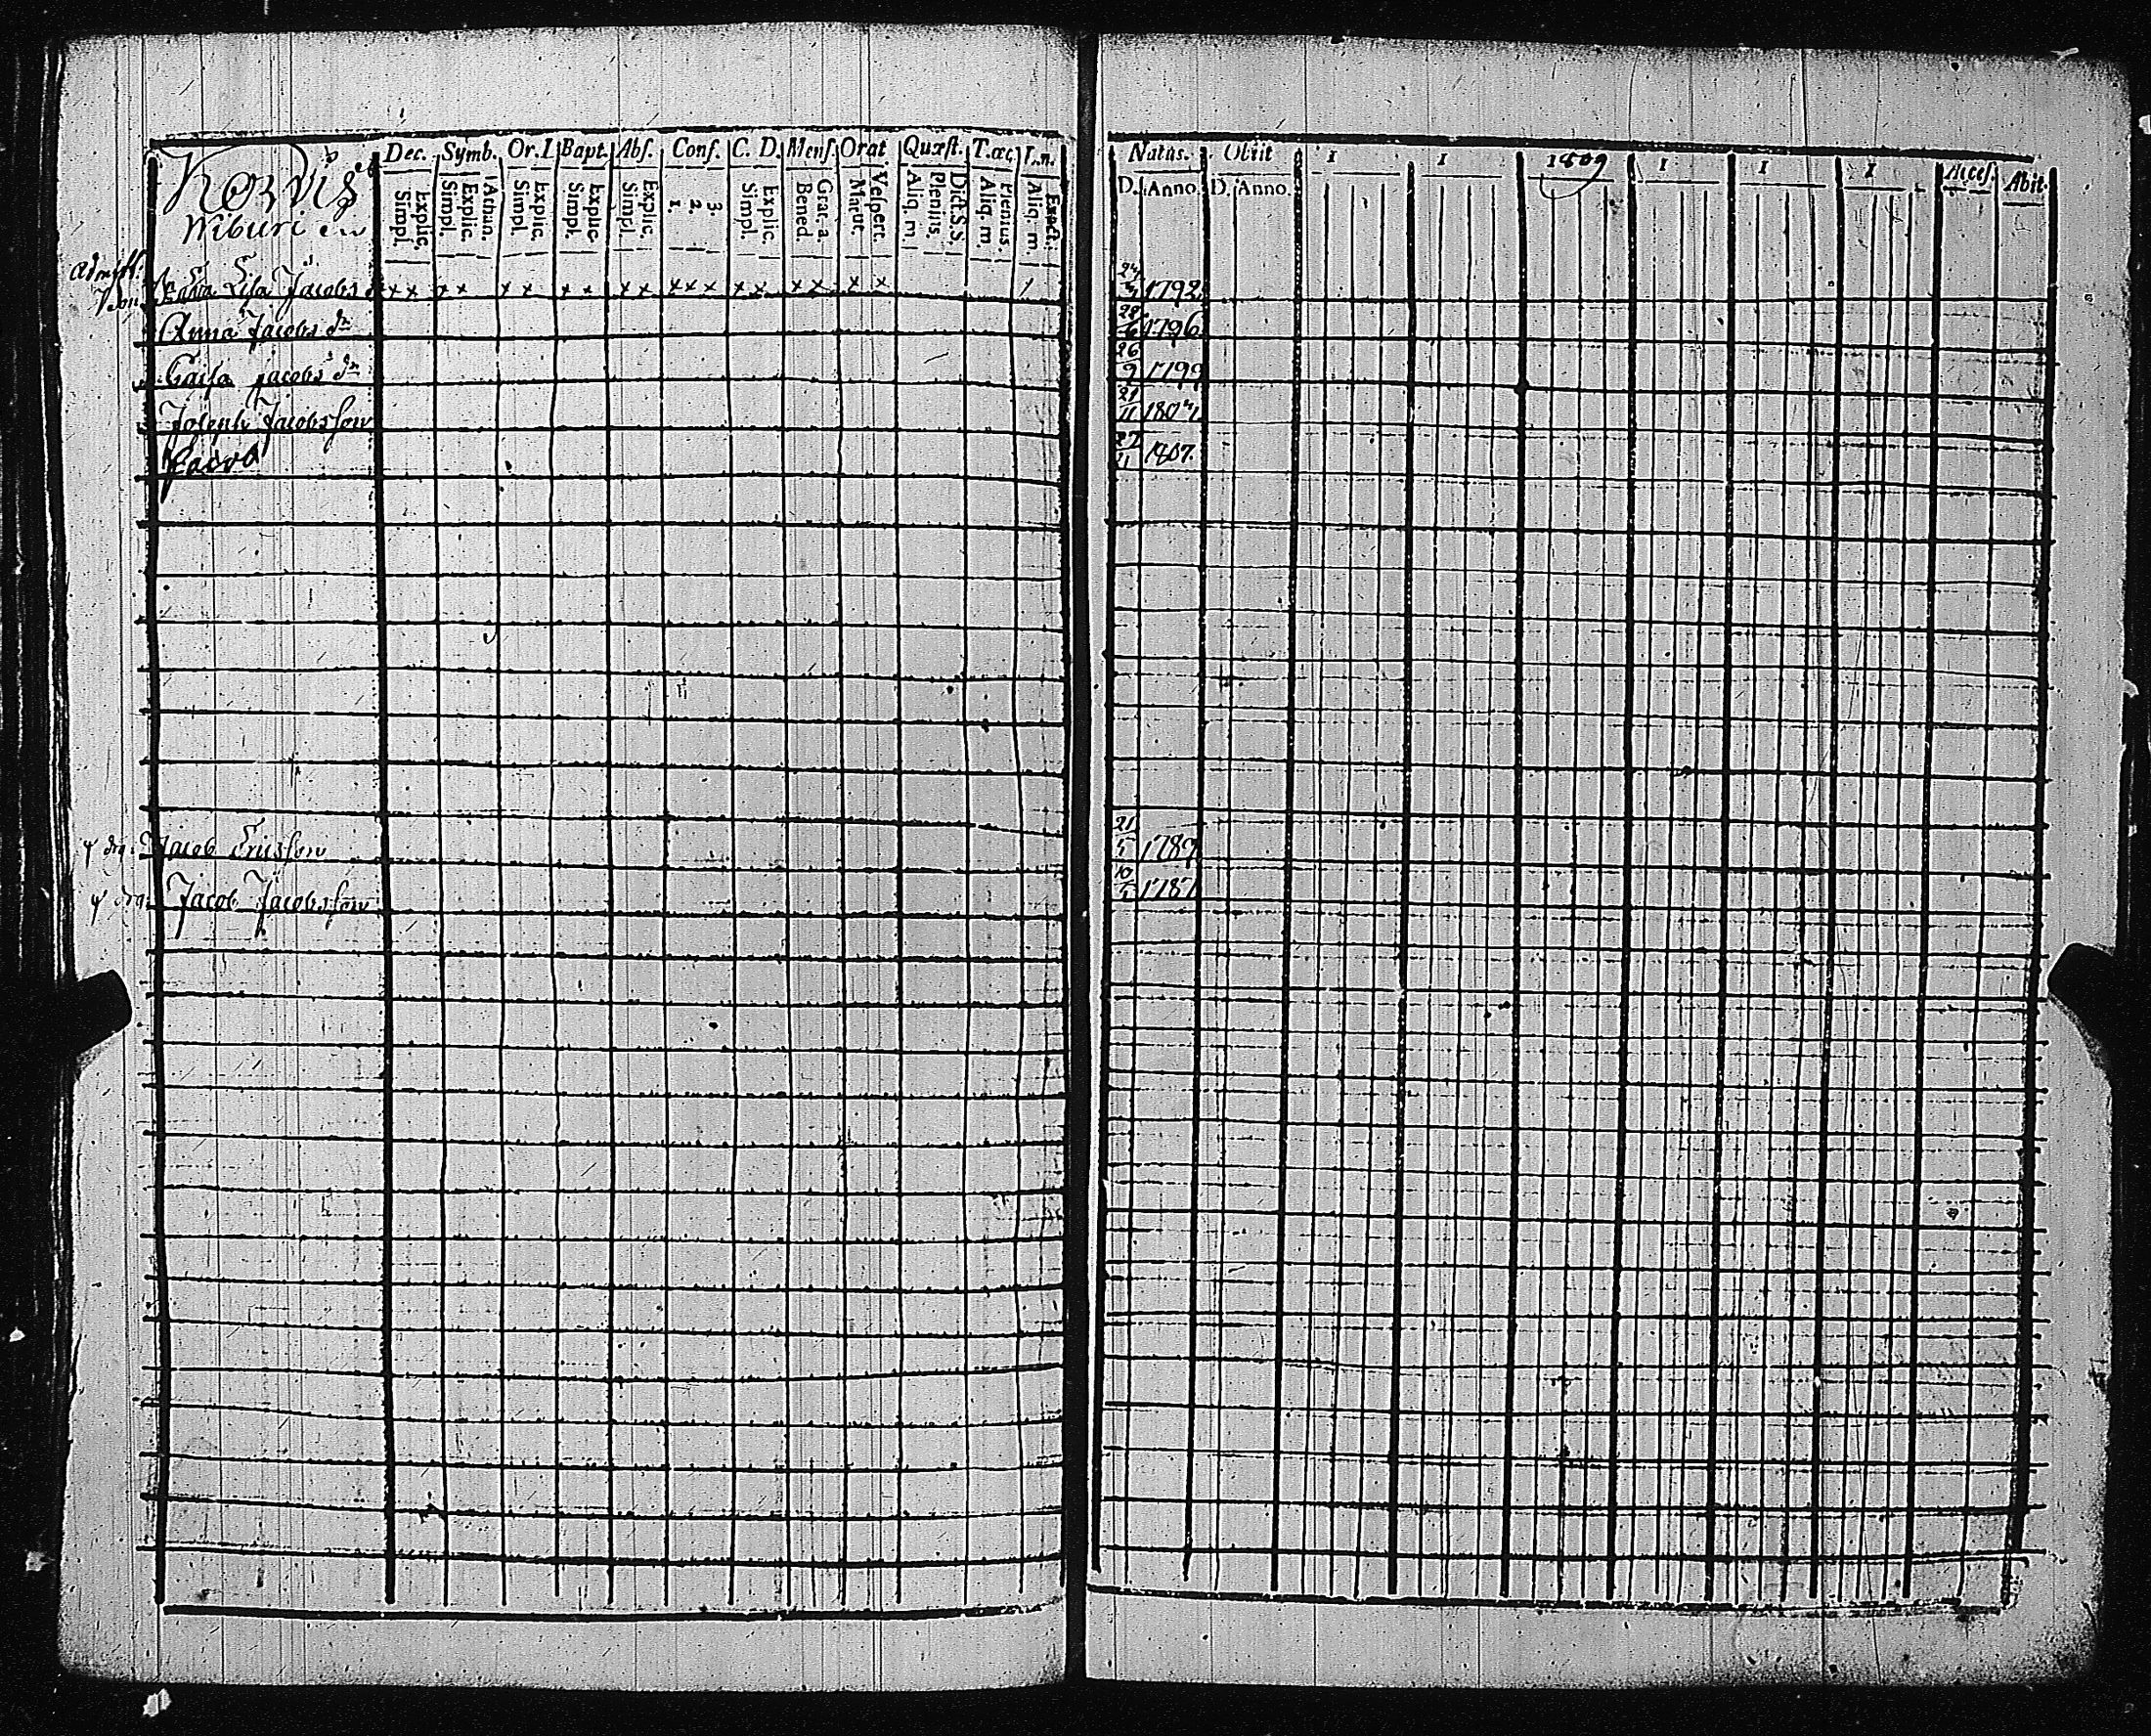 Dec. Symb. Or. D. Bapt. Abs. Conf. C. D. Mens. Orat. Quæst. T. œc. L. n.
Explic. Simpl. Athan. Explic. Simpl. Explic. Simpl. Explic. Simpl. Explic. Simpl. 3. 2. 1. Explic. Simpl. Grat. a. Bened. Vespert. Matut. Dict. S. S. Plenius. Aliq. m. Plenius. Aliq. m. Exact. Aliq. m.
Natus. Obiit 1 1 1809 1 1 1 Acces. Abit.
D. Anno. D. Anno.
Lisa Jacobs x x x x x x x x x x x x x x x x x x x 1792
Anna Jacobs dr 28 6 1796
Caisa Jacobs dr 26 9 1799
Joseph Jacobsson 21 11 1804
Jacob 27 11 1807.
Jacob Ericsson 21 1789
Jacob Jacobsson 10 1787